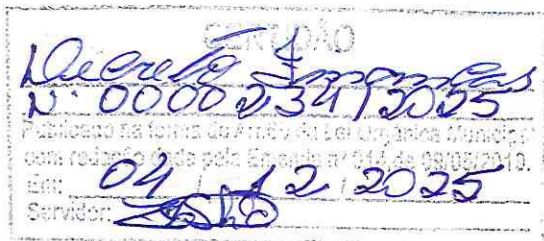 CERTIDÃO
Decreto
N. 0000234/2025
Publicado na forma do Art. da Lei Orgânica Municipal
com redação dada pela Emenda nº de 09/09/2010.
Em: 04 / 12 / 2025
Servidor: